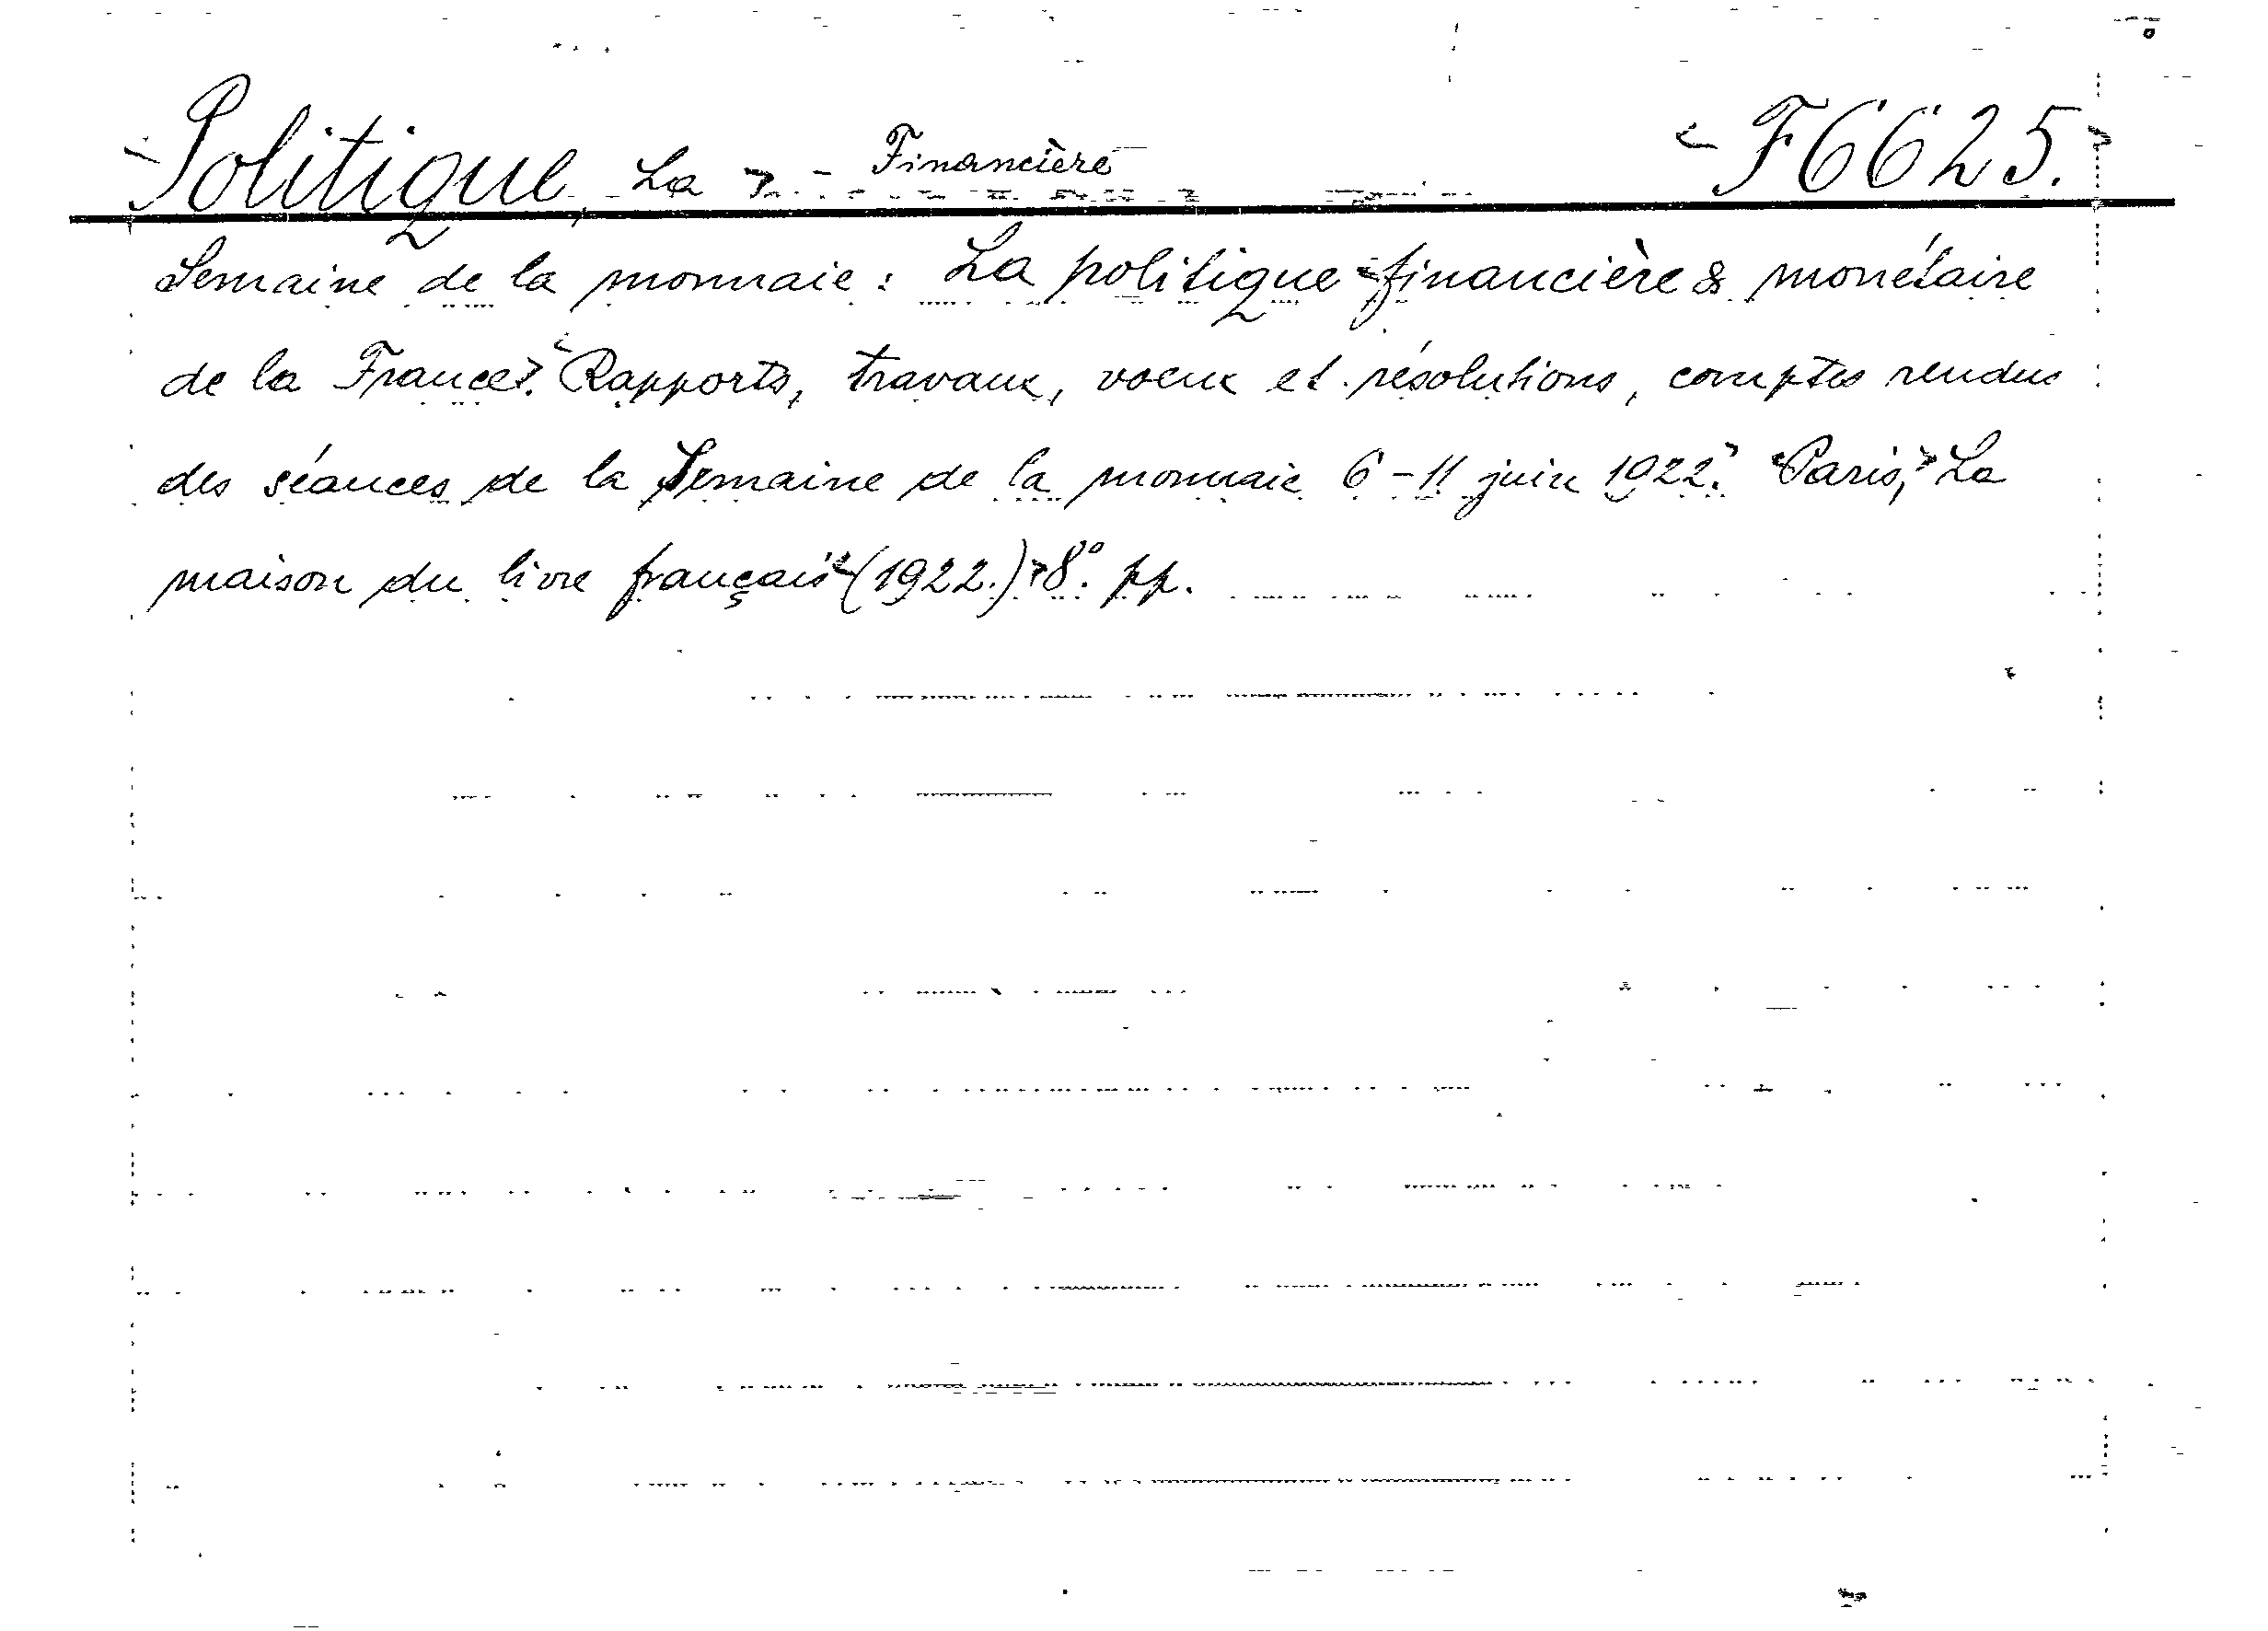 Politique, La - Financière F6625.
Semaine de la monnaie : La politique financière & monétaire
de la France. Rapports, travaux, voeux et résolutions, comptes rendus
des séances de la Semaine de la monnaie 6-11 juin 1922. Paris, La
maison du livre français (1922.) 8°. pp.